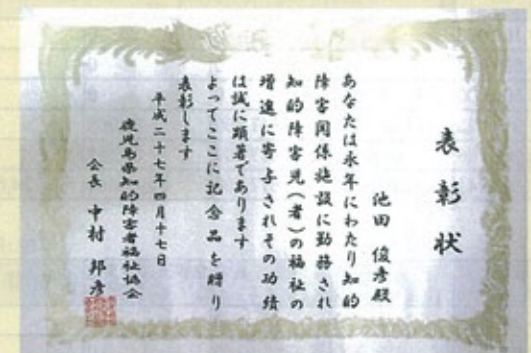 表彰状
池田 俊彦殿
あなたは永年にわたり知的
障害関係施設に勤務され
知的障害児(者)の福祉の
増進に寄与されその功績
は誠に顕著であります
よってここに記念品を贈り
表彰します
平成二十七年四月十七日
鹿児島県知的障害者福祉協会
会長 中村 邦彦